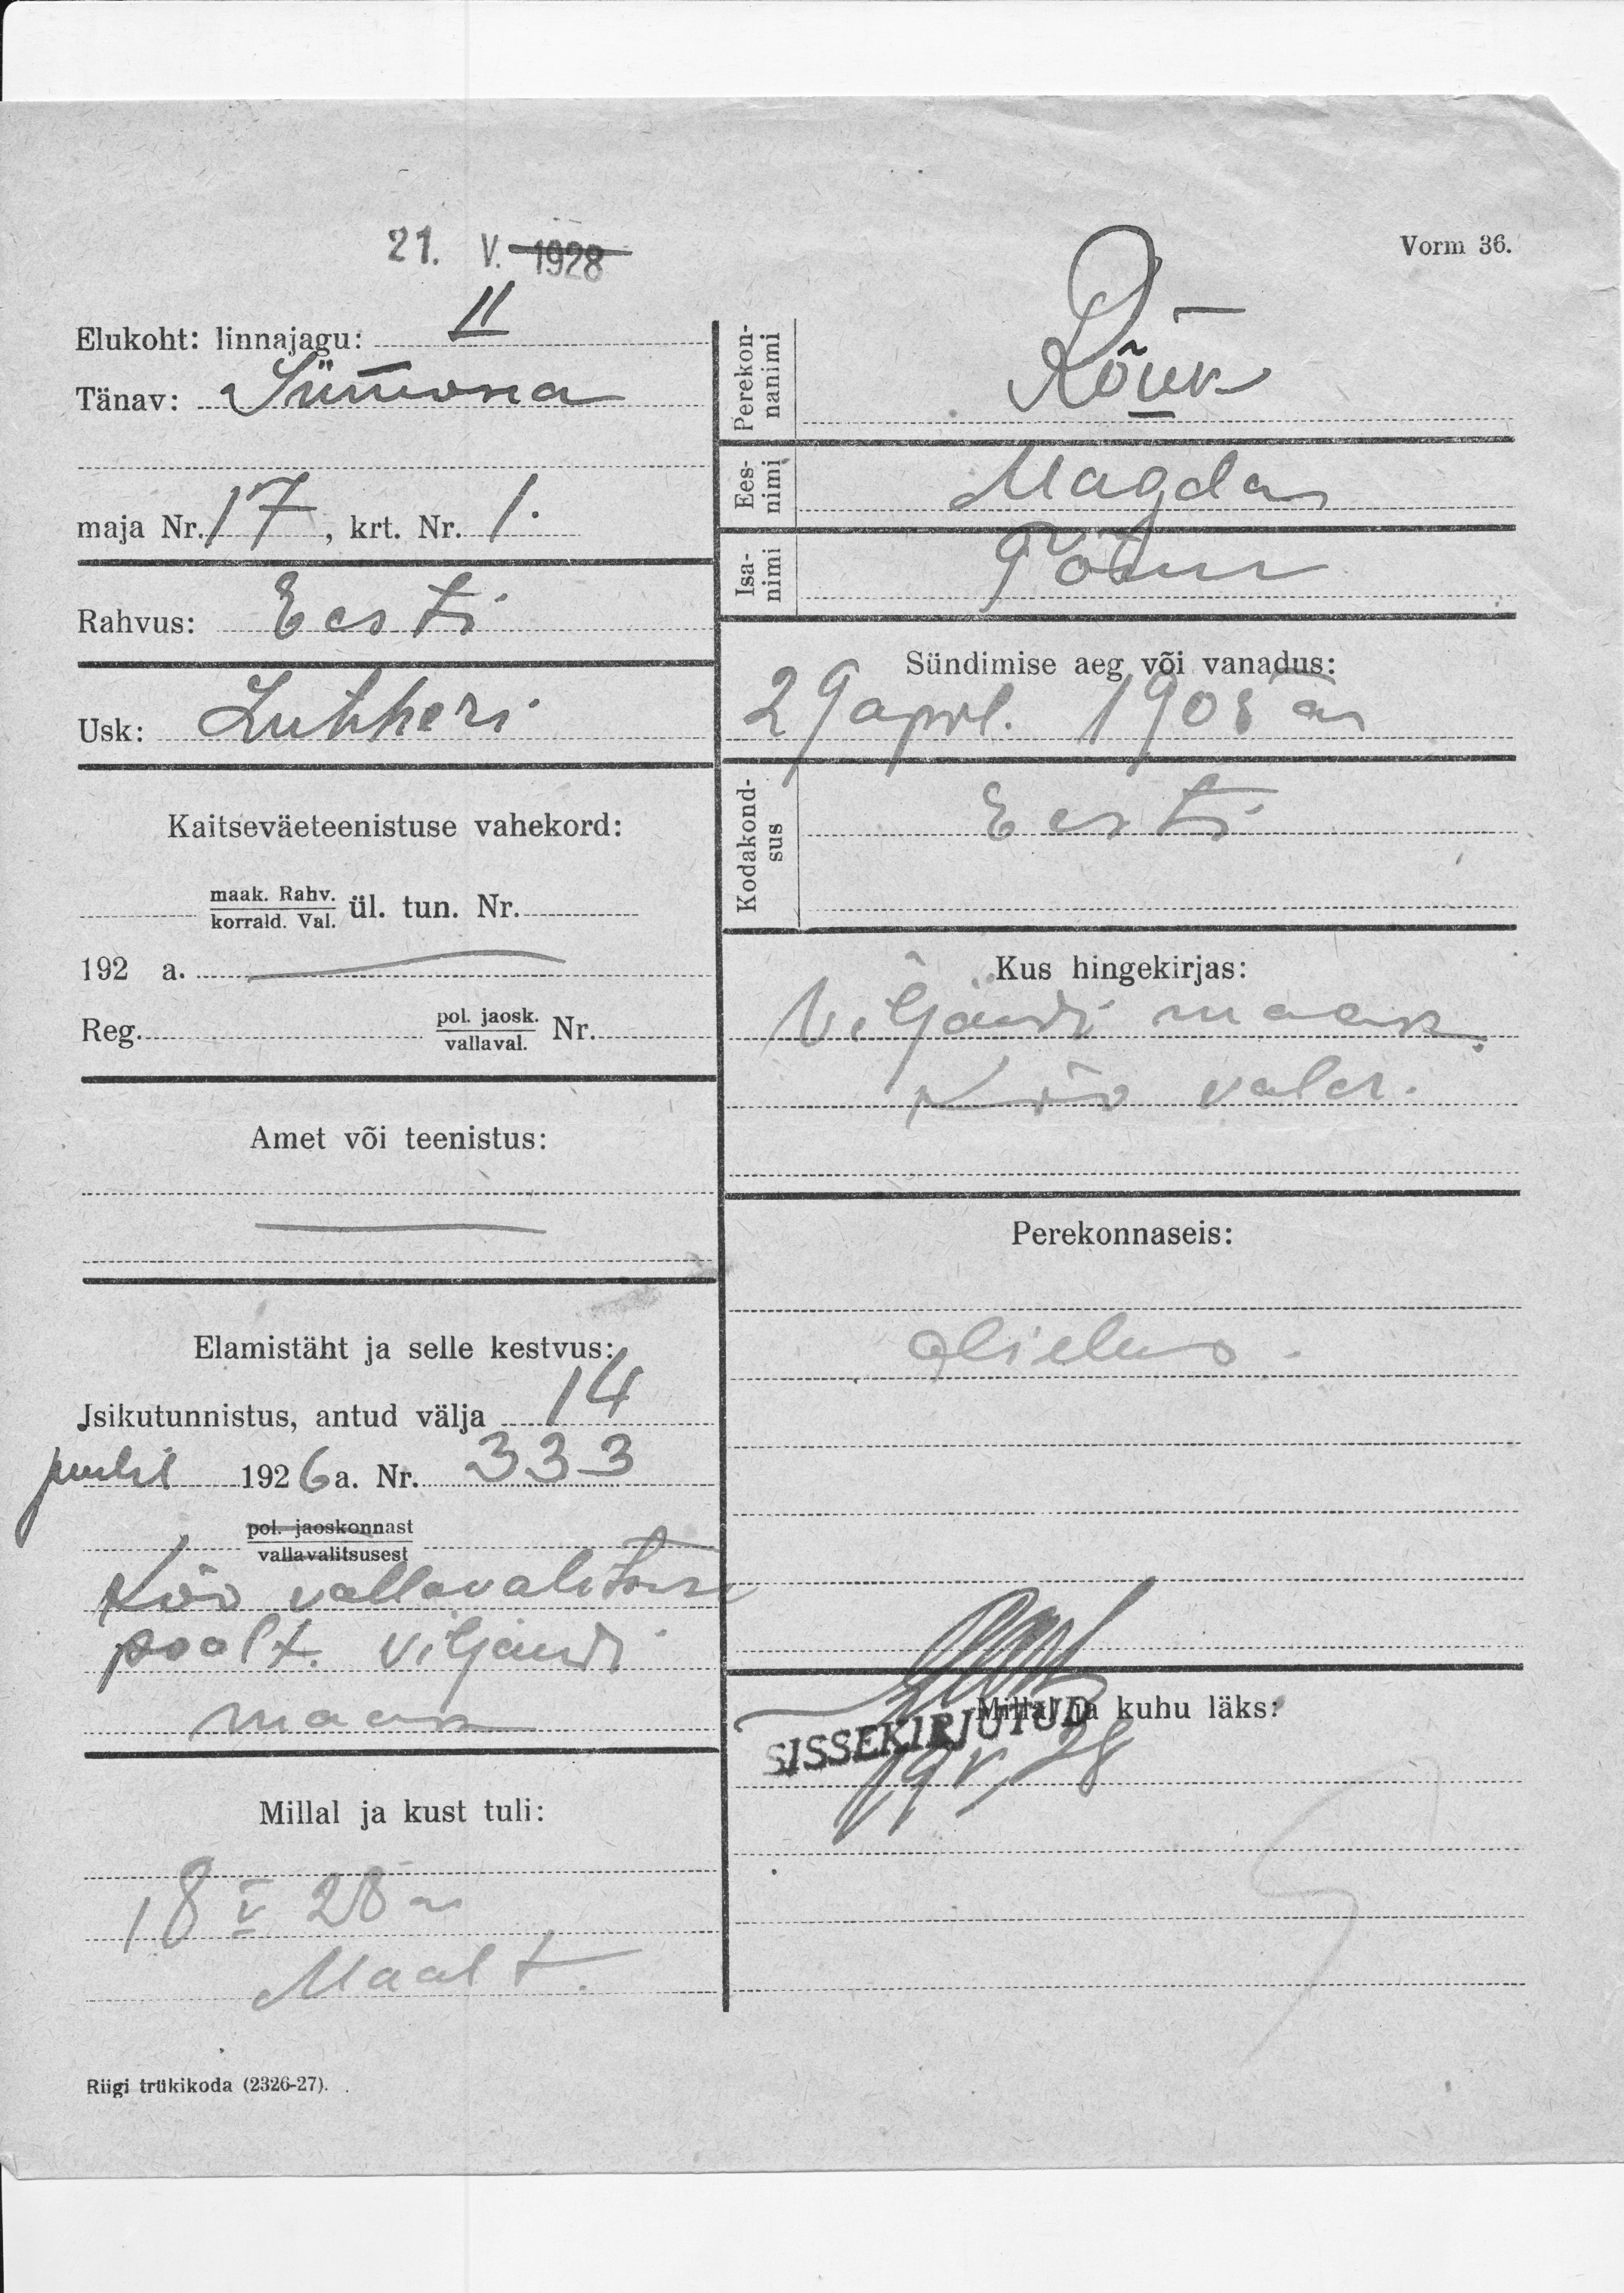 21. V. 1928
Vorm 36.
Elukoht: linnajagu: II
Tänav: Siimona
maja Nr. 17, krt. Nr. 1.
Rahvus: Eesti
Usk: Lutheri
Kaitseväeteenistuse vahekord:
maak. Rahv.
korrald. Val. ül. tun. Nr.
192 a.
Reg. pol. jaosk.
vallaval. Nr.
Amet või teenistus:
Elamistäht ja selle kestvus:
Isikutunnistus, antud välja 14
juulil 1926 a. Nr. 333
pol. jaoskonnast
vallavalitsusest
Kõo vallavalitsuse
poolt. Viljandi
maak
Millal ja kust tuli:
18 V 28 a
Maalt.
Riigi trükikoda (2326-27).
Perekon-
nanimi
Rõuk
Ees-
nimi
Magda
Isa-
nimi
Tõnu
Sündimise aeg või vanadus:
29 april. 1908 a
Kodakond-
sus
Eesti
Kus hingekirjas:
Viljandi maak.
Kõo vald.
Perekonnaseis:
Millal ja kuhu läks:
SISSEKIRJUTUD
19 V 28